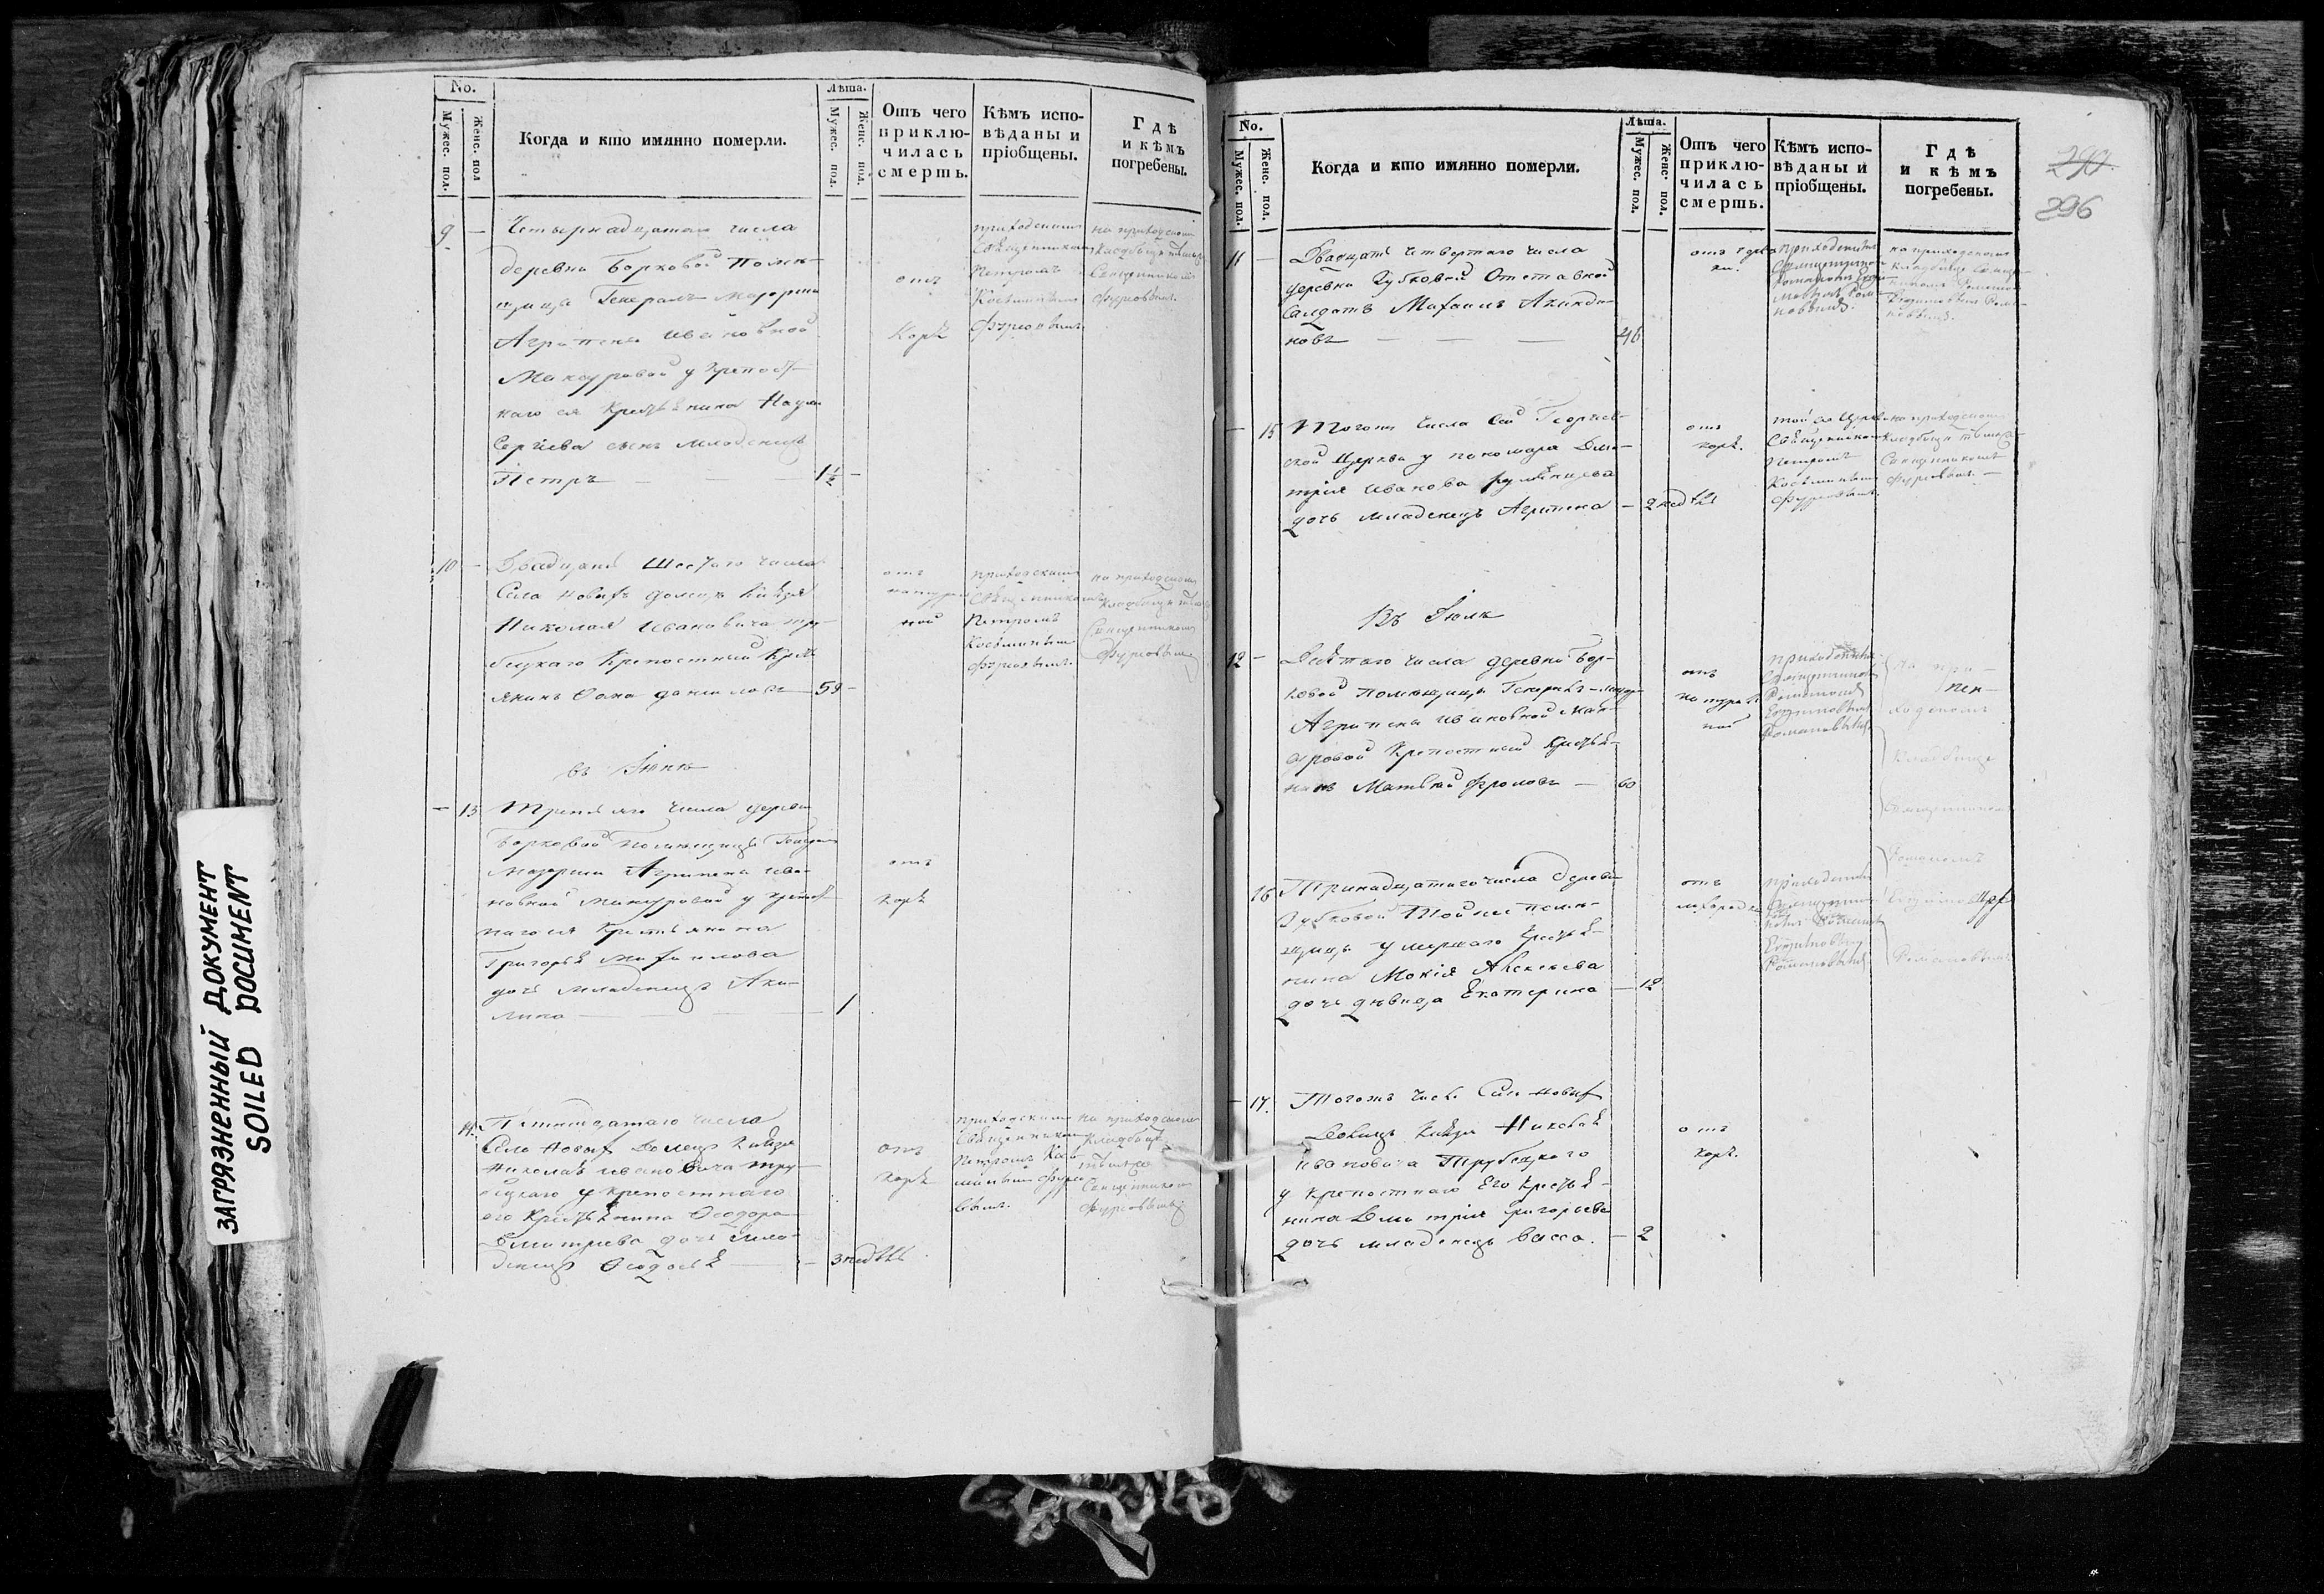 ЗАГРЯЗНЕННЫЙ ДОКУМЕНТ
SOILED DOCUMENT
No.
Мужес. пол.
Женс. пол
Когда и кто имянно померли.
Лѣта.
Мужес. пол.
Женс. пол.
Отъ чего
приклю-
чилась
смерть.
Кѣмъ испо-
вѣданы и
пріобщены.
Гдѣ
и кѣмъ
погребены.
9 — Четырнадцатаго числа
деревни Борковой помѣ-
щицы Генералъ Маіорши
Агрипены Ивановной
Мансуровой у крепост-
наго ея крестьянина Наума
Сергіева сынъ младенецъ
Петръ — — — 1½ —
отъ
корѣ
приходскимъ
Священникомъ
Петромъ
Косминымъ
Фурсовымъ
на приходскомъ
кладбище тѣмъже
Священникомъ
Фурсовымъ.
10 — Двадцать Шестаго числа
Села Новыхъ долецъ Князя
Николая Ивановича тру-
бецкаго крепостный крѣсть
янинъ Ѳома даниловъ — 59 —
отъ
натураль
ной
приходскимъ
Священникомъ
Петромъ
Косминымъ
Фурсовымъ
на приходскомъ
кладбище тѣмъже
Священникомъ
Фурсовымъ
въ Іюнѣ
— 13 Третьяго числа деревни
Борковой помѣщицы Генералъ
Маіорши Агрипены Ива-
новной Мансуровой у крепост-
наго ея крестьянина
Григорья Михаилова
дочь младенецъ Аку-
лина — — — 1
отъ
корѣ
14. Пятнадцатаго числа
Села Новыхъ Долецъ Князя
Николая Ивановича тру-
бецкаго у крепостнаго
его крестьянина Ѳеодора
Дмитрева дочь мла-
денецъ Ѳеодосья — — 3 недѣль
отъ
корѣ
приходскимъ
Священникомъ
Петромъ Кось
минымъ Фурсо
вымъ.
на приходскомъ
кладбище
тѣмъже
Священникомъ
Фурсовымъ
No.
Мужес. пол.
Женс. пол.
Когда и кто имянно померли.
Лѣта.
Мужес. пол.
Женс. пол.
Отъ чего
приклю-
чилась
смерть.
Кѣмъ испо-
вѣданы и
пріобщены.
Гдѣ
и кѣмъ
погребены.
290
296
11 — Двадцать четвертаго числа
деревни Зубковой Отставной
Солдатъ Михаилъ Акинди-
новъ — — — 46
отъ горяч
ки.
приходскимъ
Священникомъ
Романомъ Евфи
мовымъ Рома
новымъ.
на приходскомъ
кладбище Священ
никомъ Романомъ
Евфимовымъ Рома-
новымъ.
— 15 Тогожъ числа Сей Георгіев-
ской Церкви у пономаря Дми-
трія Иванова Румянцева
дочь младенецъ Агрипена — 2 недѣль
отъ
корѣ.
той же Церкви
Священникомъ
Петромъ
Косминымъ
Фурсовымъ
на приходскомъ
кладбище тѣмъже
Священникомъ
Фурсовымъ. —
Въ Іюлѣ
12 — Девятаго числа деревни Бор-
ковой помѣщицы Генералъ-маіор
Агрипены Ивановной Ман-
суровой крепостной крестья-
нинъ Матвѣй Фроловъ — 60
отъ
натураль
ной
приходскимъ
Священникомъ
Романомъ
Евфимовымъ
Романовымъ
На при-
ходскомъ
Кладбище
Священникомъ
Романомъ
Евфимовымъ
Романовымъ
16 Тринадцатаго числа деревни
Зубковой Той же помѣ-
щицы умершаго крестья-
нина Мокія Авксеньева
дочь дѣвица Екатерина — 12
отъ
лихорадки
приходскимъ
Священни
комъ Романомъ
Евфимовымъ
Романовымъ
— 17. Тогожъ числа Села Новыхъ
Долецъ Князя Николая
Ивановича Трубецкаго
у крепостнаго Его крестья-
нина Дмитрія Григорьева
дочь младенецъ Васса. — 2
отъ
корѣ.